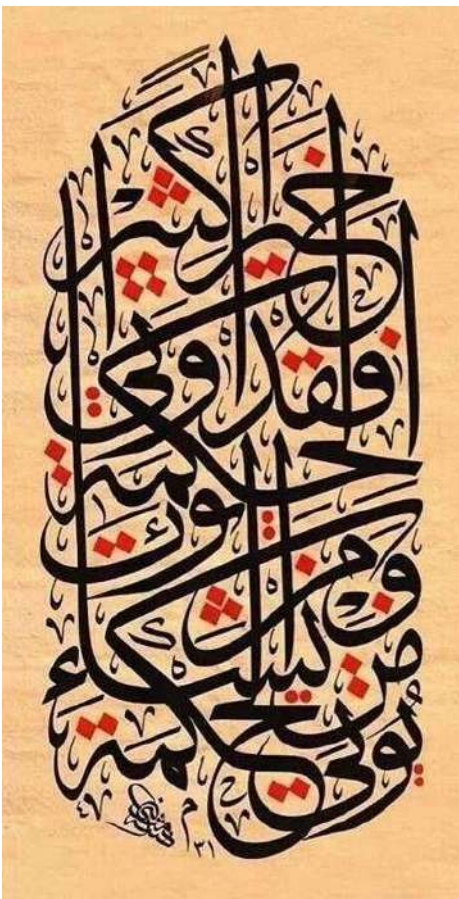 يؤتي الحكمة
من يشاء
ومن يؤت
الحكمة
فقد أوتي
خيرا كثيرا